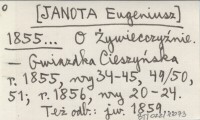 [JANOTA Eugeniusz]
1855... O Żywiecczyźnie.
— Gwiazdka Cieszyńska
r. 1855, nry 34-45, 49/50,
51; r. 1856, nry 20-24.
Też odb.: jw. 1859.